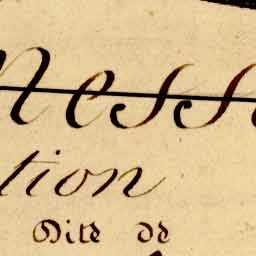 ness
tion
Dite de